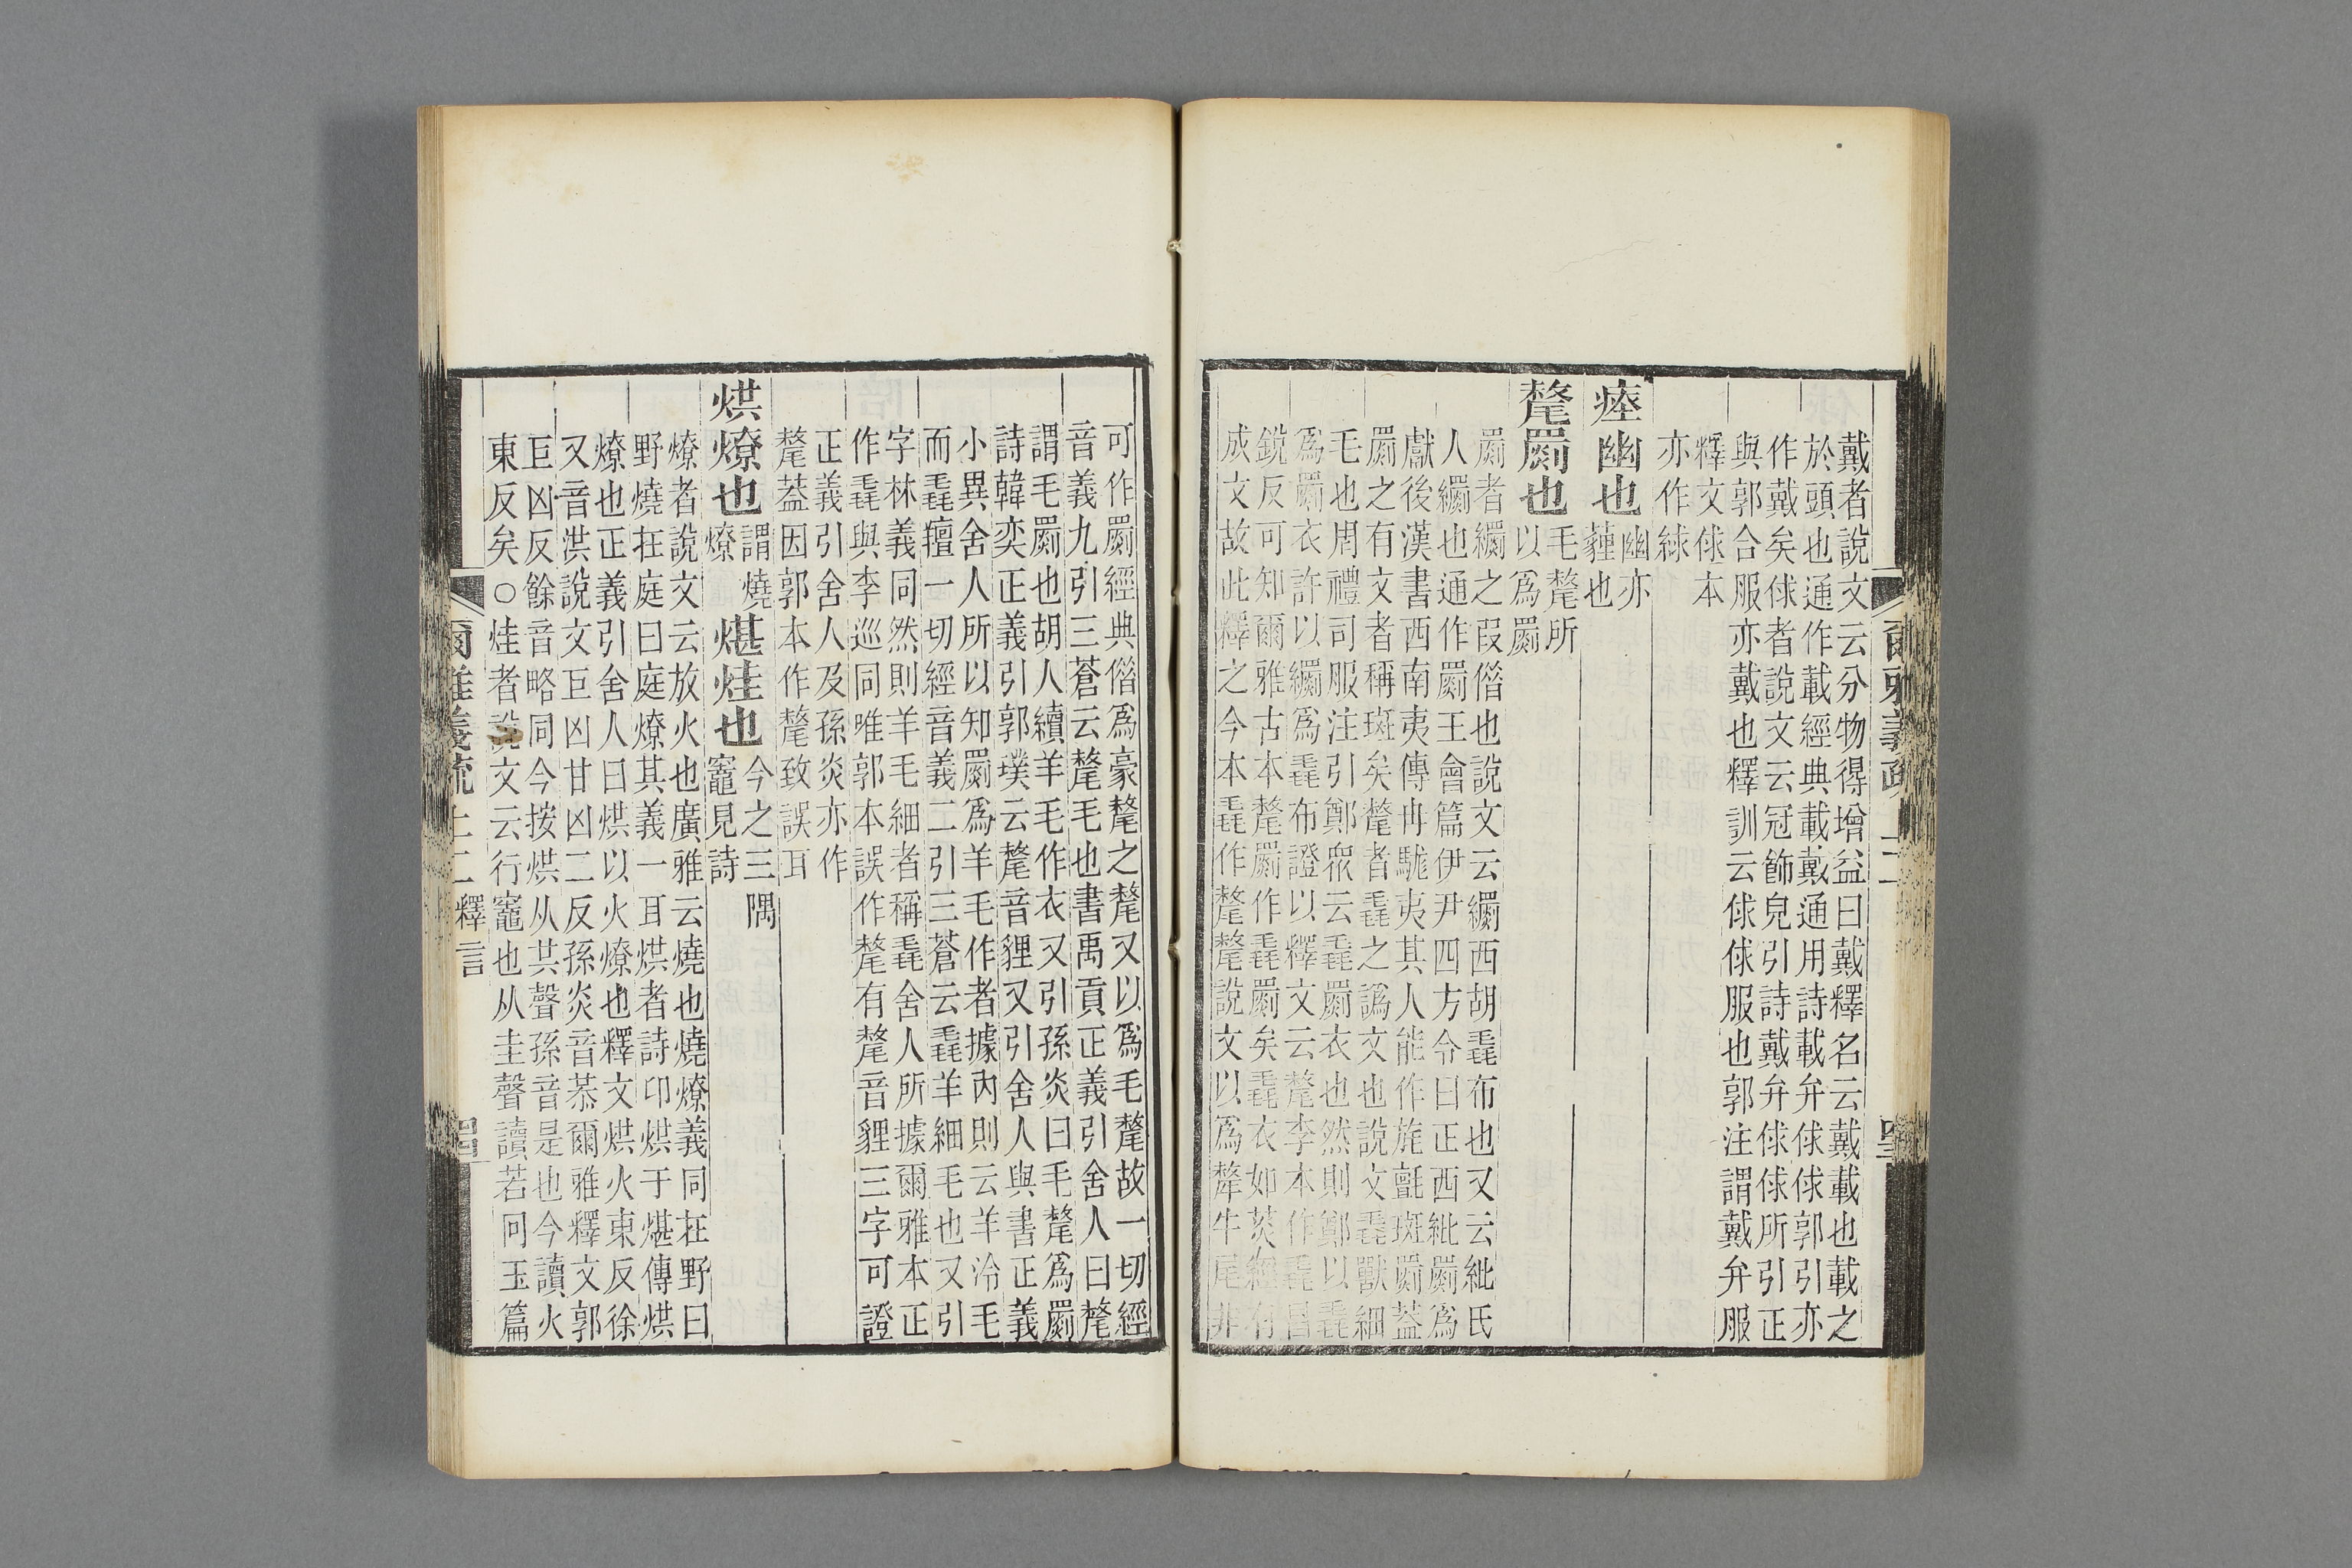 戴者說文云分物得增益曰戴釋名云戴載也載之
於頭也通作載經典載戴通用詩載弁俅俅郭引亦
作戴矣俅者說文云冠飾皃引詩戴弁俅俅所引正
與郭合服亦戴也釋訓云俅俅服也郭注謂戴弁服
釋文俅本
亦作絿
瘞幽也幽亦
薶也
氂罽也毛氂所
以爲罽
罽者𦇧之叚借也說文云𦇧西胡毳布也又云紕氐
人𦇧也通作罽王會篇伊尹四方令曰正西紕罽爲
獻後漢書西南夷傳冉駹夷其人能作旄氈斑罽蓋
罽之有文者稱斑矣氂者毳之譌文也說文毳獸細
毛也周禮司服注引鄭眾云毳罽衣也然則鄭以毳
爲罽衣許以𦇧爲毳布證以釋文云氂李本作毳昌
銳反可知爾雅古本氂罽作毳罽矣毳衣如菼𦀌有
成文故此釋之今本毳作氂氂說文以爲犛牛尾非
爾雅義疏 上二 四三
可作罽經典借爲豪氂之氂又以爲毛氂故一切經
音義九引三蒼云氂毛也書禹貢正義引舍人曰氂
謂毛罽也胡人續羊毛作衣又引孫炎曰毛氂爲罽
詩韓奕正義引郭璞云氂音貍又引舍人與書正義
小異舍人所以知罽爲羊毛作者據內則云羊泠毛
而毳羶一切經音義二引三蒼云毳羊細毛也又引
字林義同然則羊毛細者稱毳舍人所據爾雅本正
作毳與李巡同唯郭本誤作氂有氂音貍三字可證
正義引舍人及孫炎亦作
氂葢因郭本作氂致誤耳
烘燎也謂燒
燎煁烓也今之三隅
竈見詩
燎者說文云放火也廣雅云燒也燒燎義同在野曰
野燒在庭曰庭燎其義一耳烘者詩卬烘于煁傳烘
燎也正義引舍人曰烘以火燎也釋文烘火東反徐
又音洪說文巨凶甘凶二反孫炎音恭爾雅釋文郭
巨凶反餘音略同今按烘从共聲孫音是也今讀火
東反矣○烓者說文云行竈也从圭聲讀若冋玉篇
爾雅義疏 上二 釋言 四四